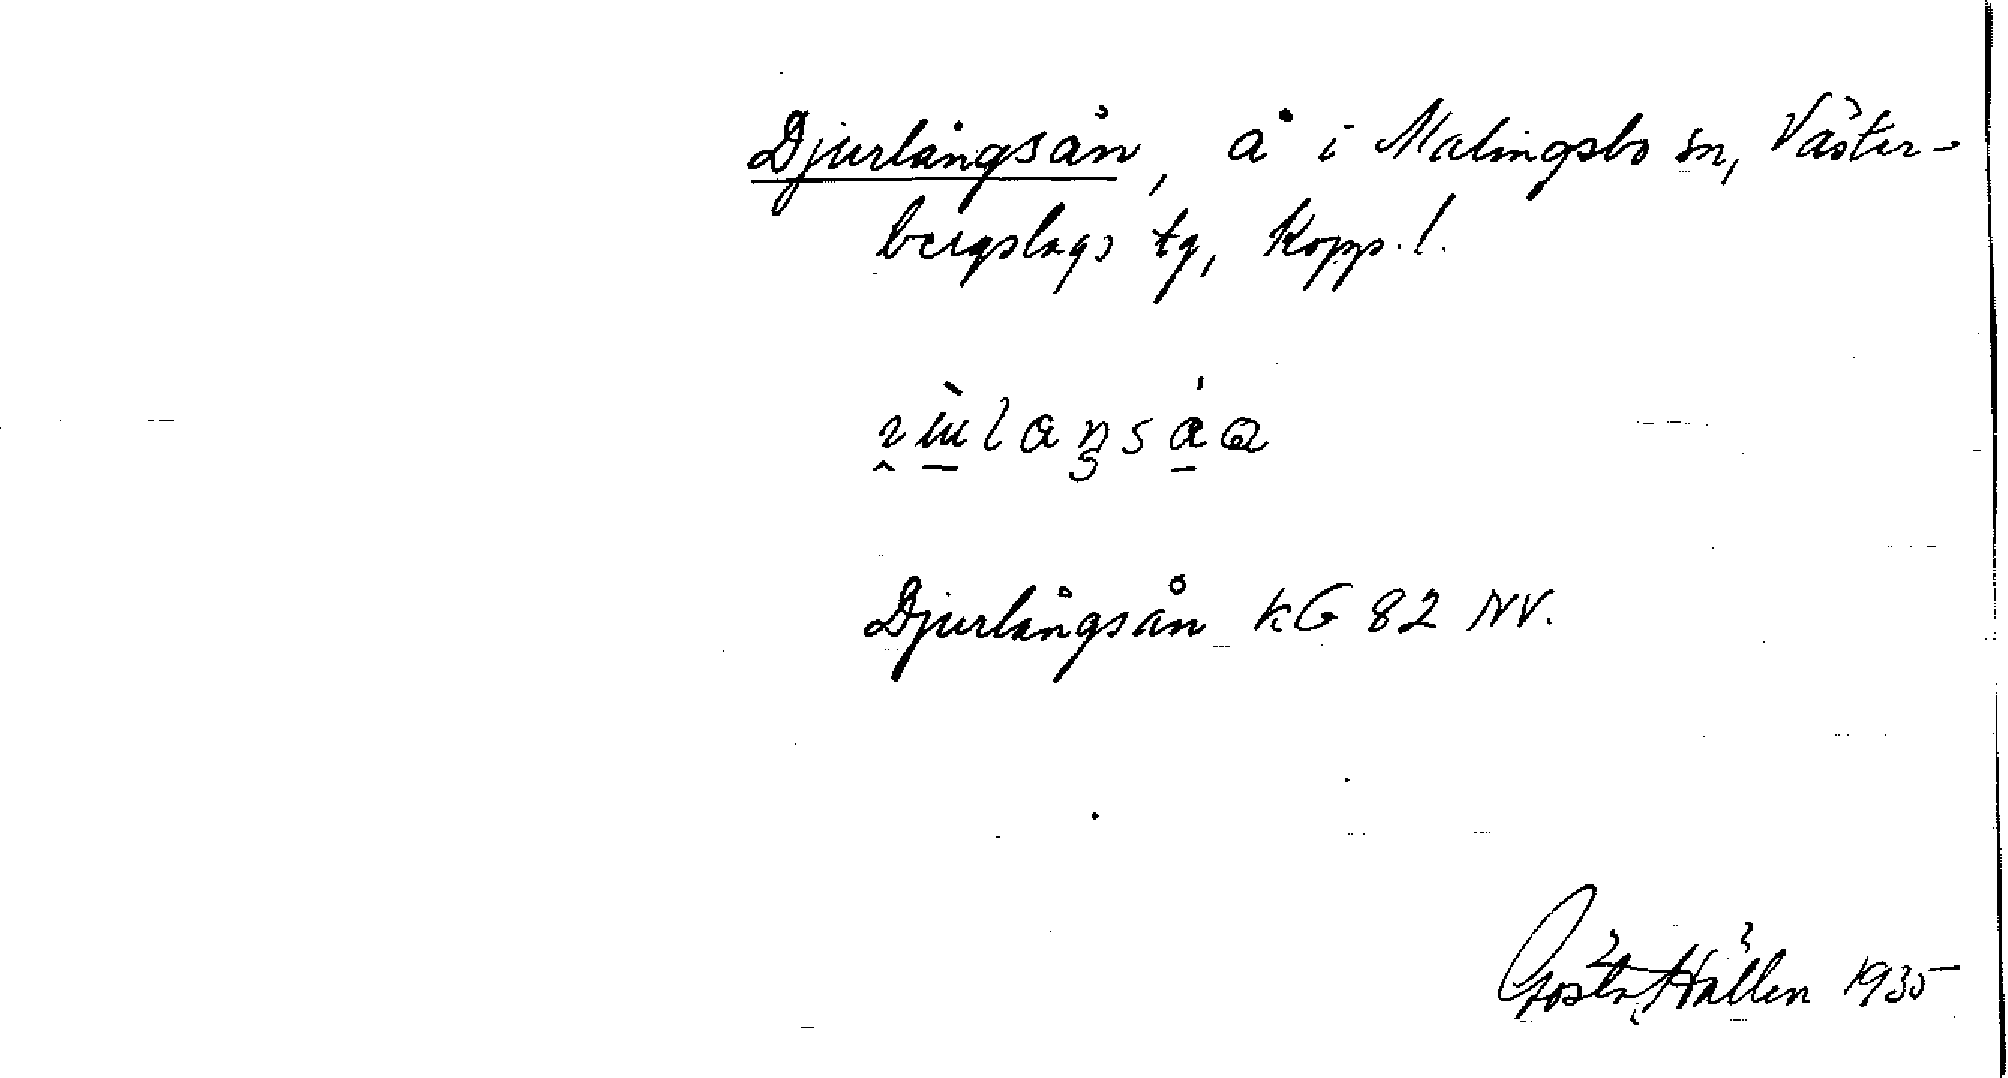 Djurlångsån, å i Malingsbo sn, Väster-
bergslags tg, Kopp. l.
Djurlångsån KG 82 NV.
Gösta Hallén 1935